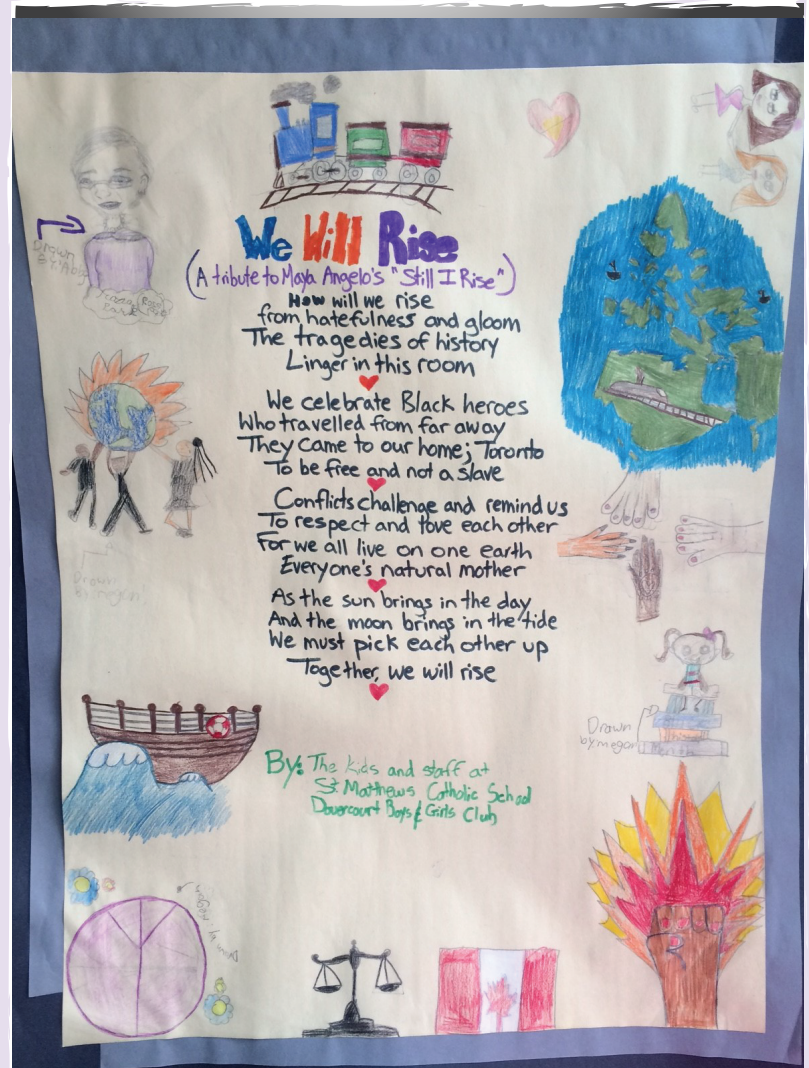 We Will Rise
(A tribute to Maya Angelo's "Still I Rise")
How will we rise
from hatefulness and gloom
The tragedies of history
Linger in this room
We celebrate Black heroes
Who travelled from far away
They came to our home; Toronto
To be free and not a slave
Conflicts challenge and remind us
To respect and love each other
For we all live on one earth
Everyone's natural mother
As the sun brings in the day
And the moon brings in the tide
We must pick each other up
Together, we will rise
By: The kids and staff at
St Matthews Catholic School
Dovercourt Boys & Girls Club
Drawn
By: Abby
Drawn
By: megan
Drawn
by: megan